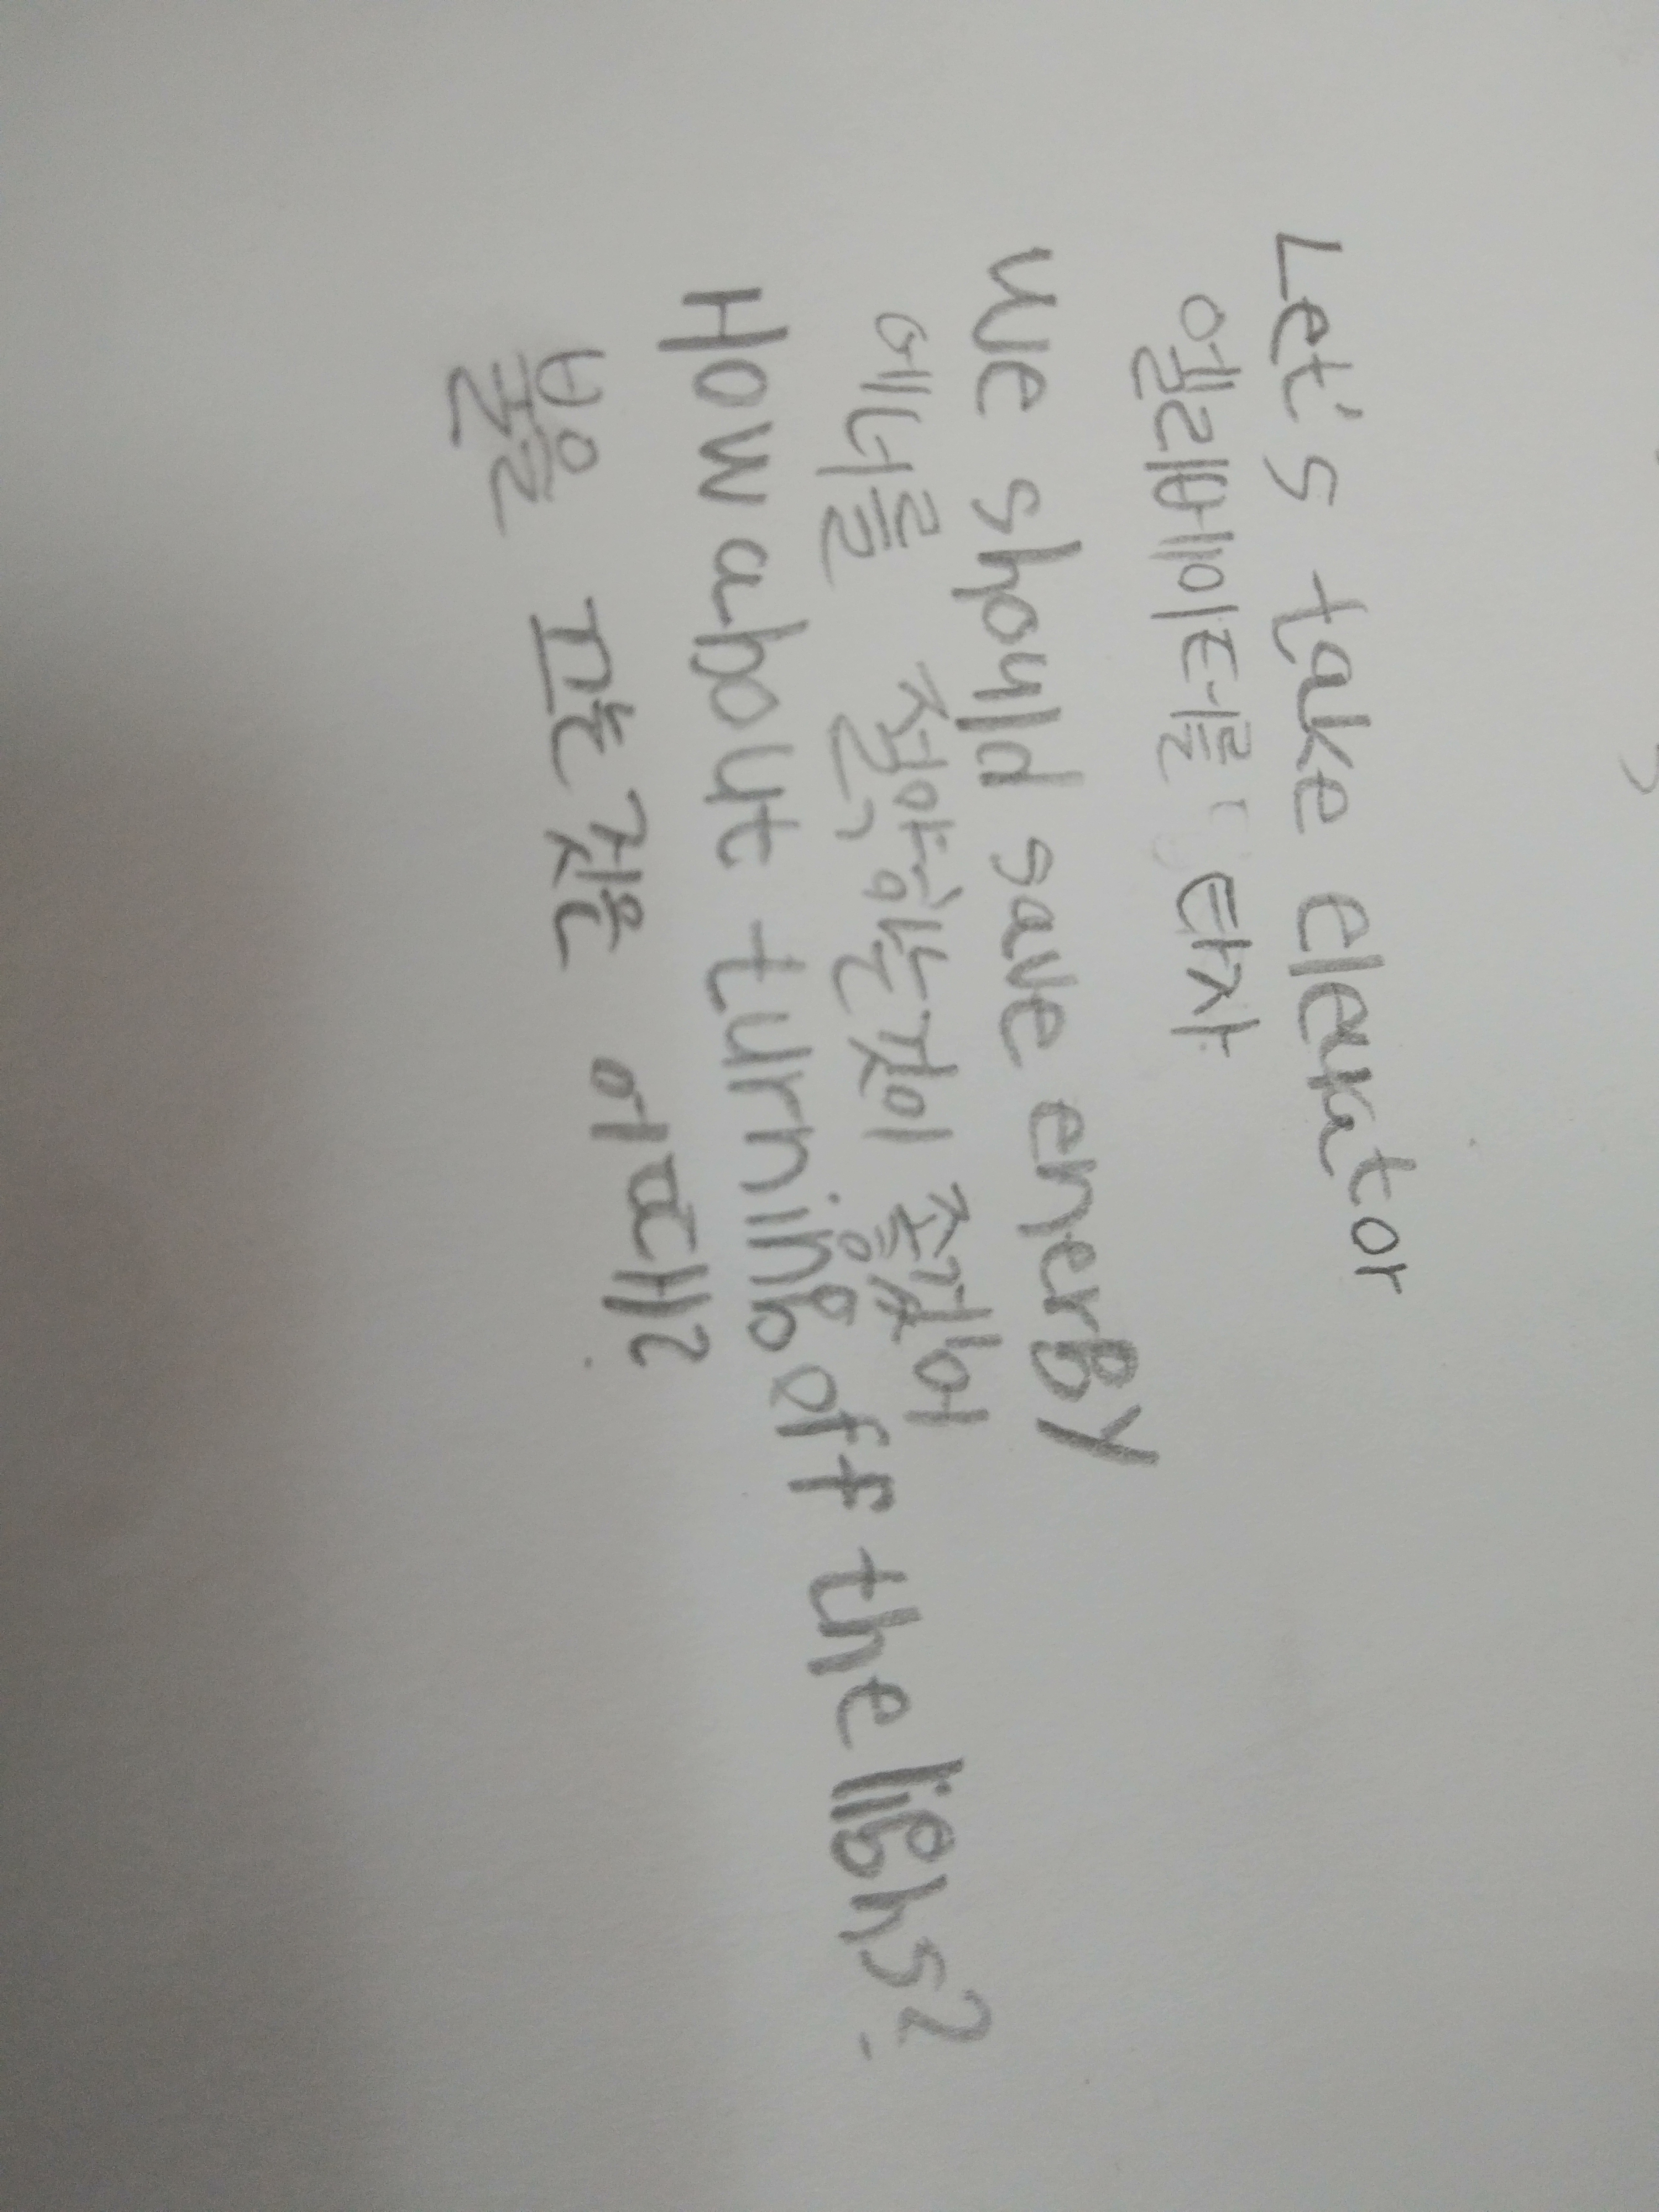 Let's take elevator
엘리베이터를 타자
We should save energy
에너를 절약하는것이 좋겠어
How about turning off the lighs?
불을 끄는것은 어때?